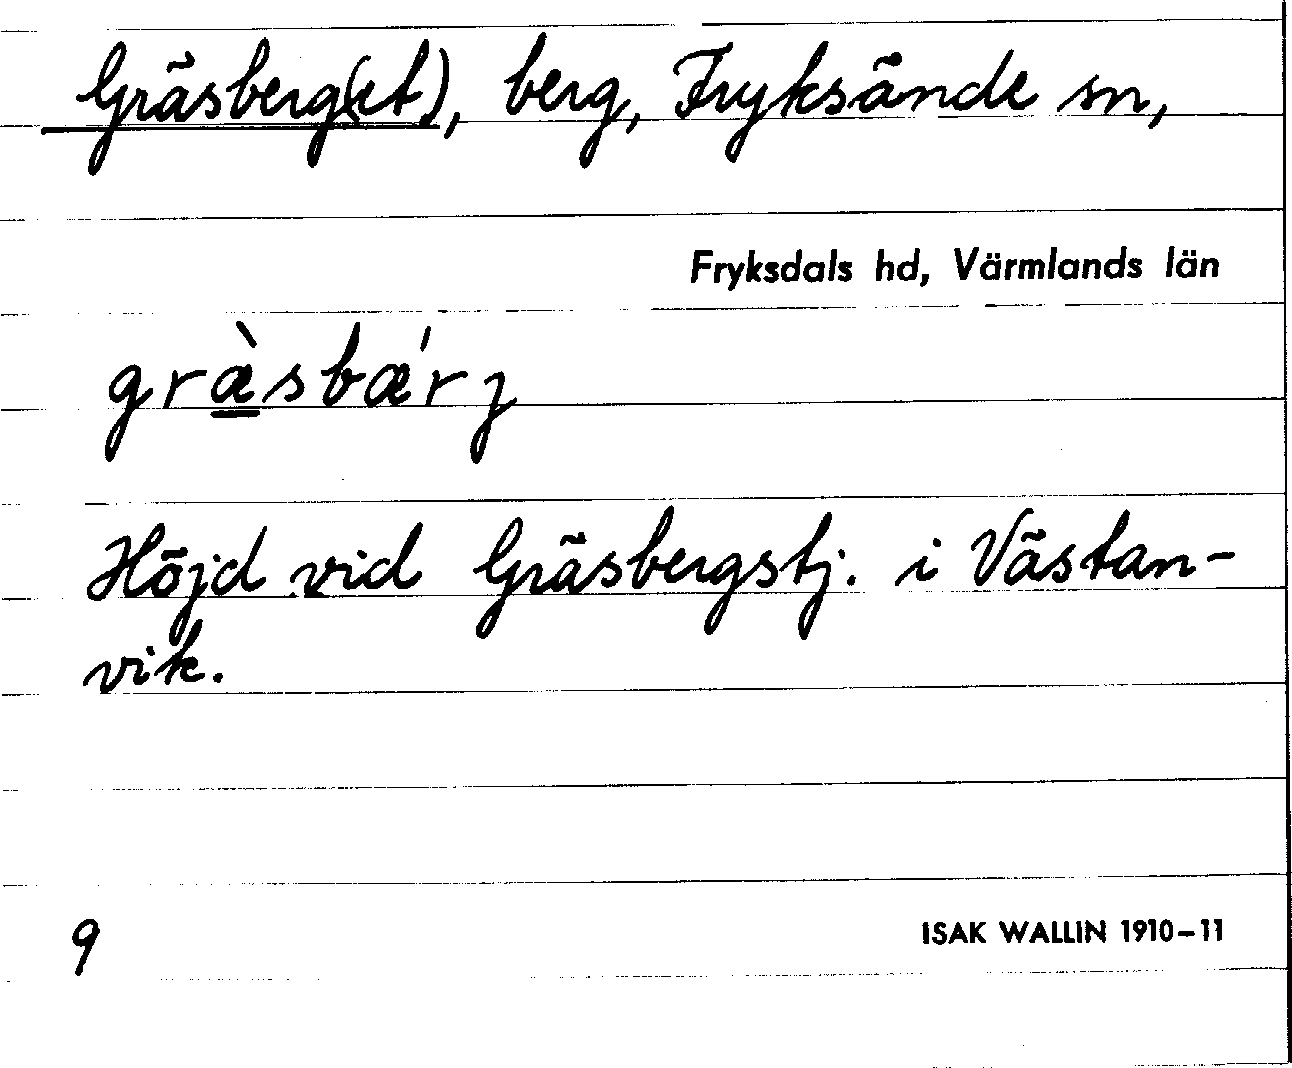 Gräsberg(et), berg, Fryksände sn,
Fryksdals hd, Värmlands län
græ̲̀sbǽrj
Höjd vid Gräsbergstj. i Västan-
vik.
9
ISAK WALLIN 1910–11